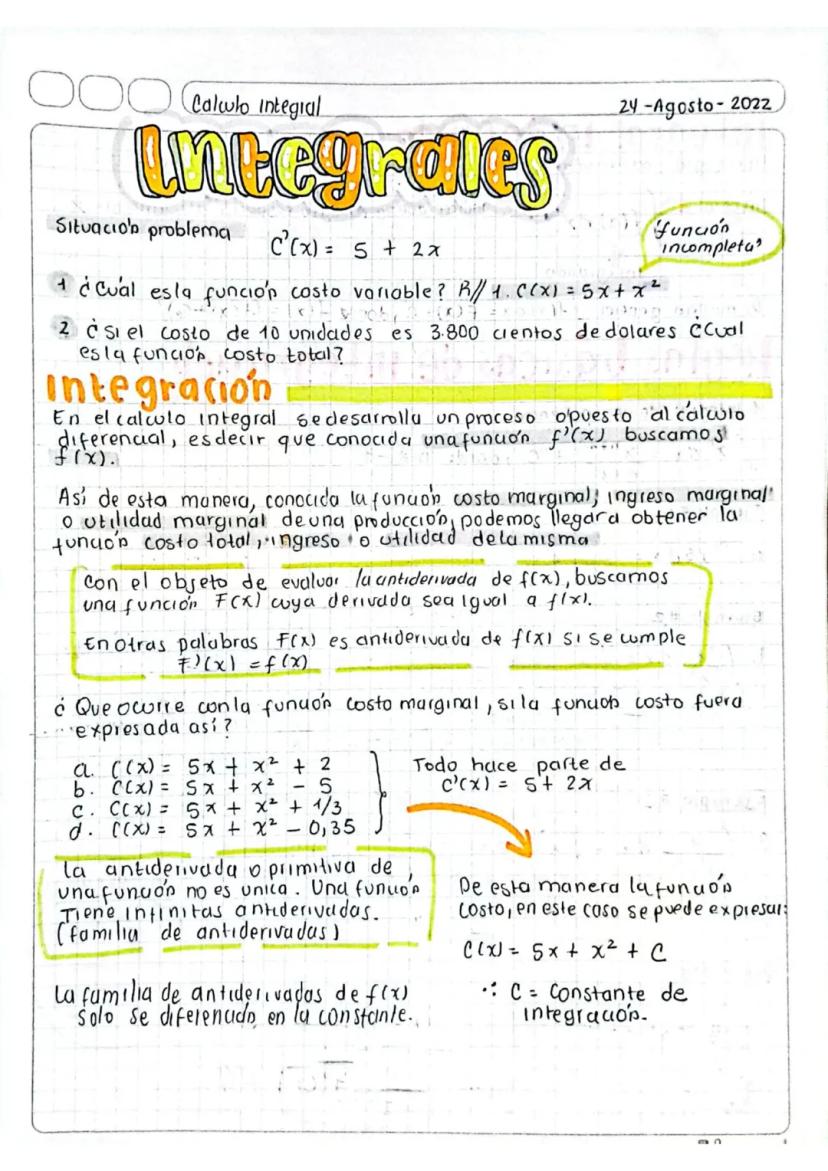 Calculo Integral
24-Agosto-2022
Integrales
Situación problema
C'(x) = 5 + 2x
"función
incompleta"
1 ¿Cuál es la función costo variable? R// 1. C(x) = 5x + x²
2 ¿Si el costo de 10 unidades es 3.800 cientos de dolares ¿Cual
es la función costo total?
Integración
En el calculo integral se desarrolla un proceso opuesto al cálculo
diferencial, es decir que conocida una función f'(x) buscamos
f(x).
Así de esta manera, conocida la función costo marginal; ingreso marginal
o utilidad marginal de una producción, podemos llegar a obtener la
función costo total, ingreso o utilidad de la misma
Con el objeto de evaluar la antiderivada de f(x), buscamos
una función F(x) cuya derivada sea igual a f(x).
En otras palabras F(x) es antiderivada de f(x) si se cumple
F'(x) = f(x)
¿Que ocurre con la función costo marginal, si la función costo fuera
expresada así?
a. C(x) = 5x + x² + 2
b. C(x) = 5x + x² - 5
c. C(x) = 5x + x² + 1/3
d. C(x) = 5x + x² - 0,35
Todo hace parte de
C'(x) = 5 + 2x
La antiderivada o primitiva de
una función no es unica. Una función
Tiene infinitas antiderivadas.
(familia de antiderivadas)
De esta manera la función
costo, en este caso se puede expresar:
C(x) = 5x + x² + C
∴ C = Constante de
integración.
La familia de antiderivadas de f(x)
solo se diferencian en la constante.